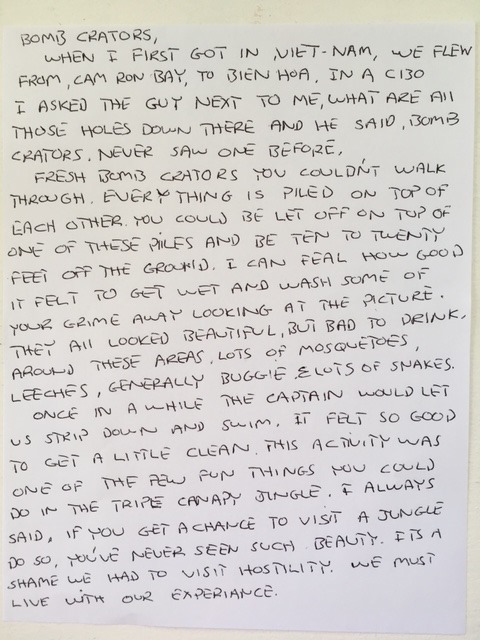 BOMB CRATORS,
WHEN I FIRST GOT IN VIET-NAM, WE FLEW
FROM, CAM RON BAY, TO BIEN HOA, IN A C130
I ASKED THE GUY NEXT TO ME, WHAT ARE All
THOSE HOLES DOWN THERE AND HE SAID, BOMB
CRATORS. NEVER SAW ONE BEFORE,
FRESH BOMB CRATORS YOU COULDN'T WALK
THROUGH. EVERYTHING IS PILED ON TOP OF
EACH OTHER. YOU COULD BE LET OFF ON TOP OF
ONE OF THESE PIILES AND BE TEN TO TWENTY
FEET OFF THE GROUND. I CAN FEAL HOW GOOD
IT FELT TO GET WET AND WASH SOME OF
YOUR GRIME AWAY LOOKING AT THE PICTURE.
THEY All LOOKED BEAUTIFUL, BUT BAD TO DRINK,
AROUND THESE AREAS, LOTS OF MOSQUETOES,
LEECHES, GENERALLY BUGGIE, & LOTS OF SNAKES.
ONCE IN A WHILE THE CAPTAIN WOULD LET
US STRIP DOWN AND SWIM. IT FELT SO GOOD
TO GET A LITTLE CLEAN. THIS ACTIVITY WAS
ONE OF THE FEW FUN THINGS YOU COULD
DO IN THE TRIPLE CANAPY JUNGLE. I ALWAYS
SAID, IF YOU GET A CHANCE TO VISIT A JUNGLE
DO SO, YOU'VE NEVER SEEN SUCH BEAUTY. ITS A
SHAME WE HAD TO VISIT HOSTILITY. WE MUST
LIVE WITH OUR EXPERIANCE.